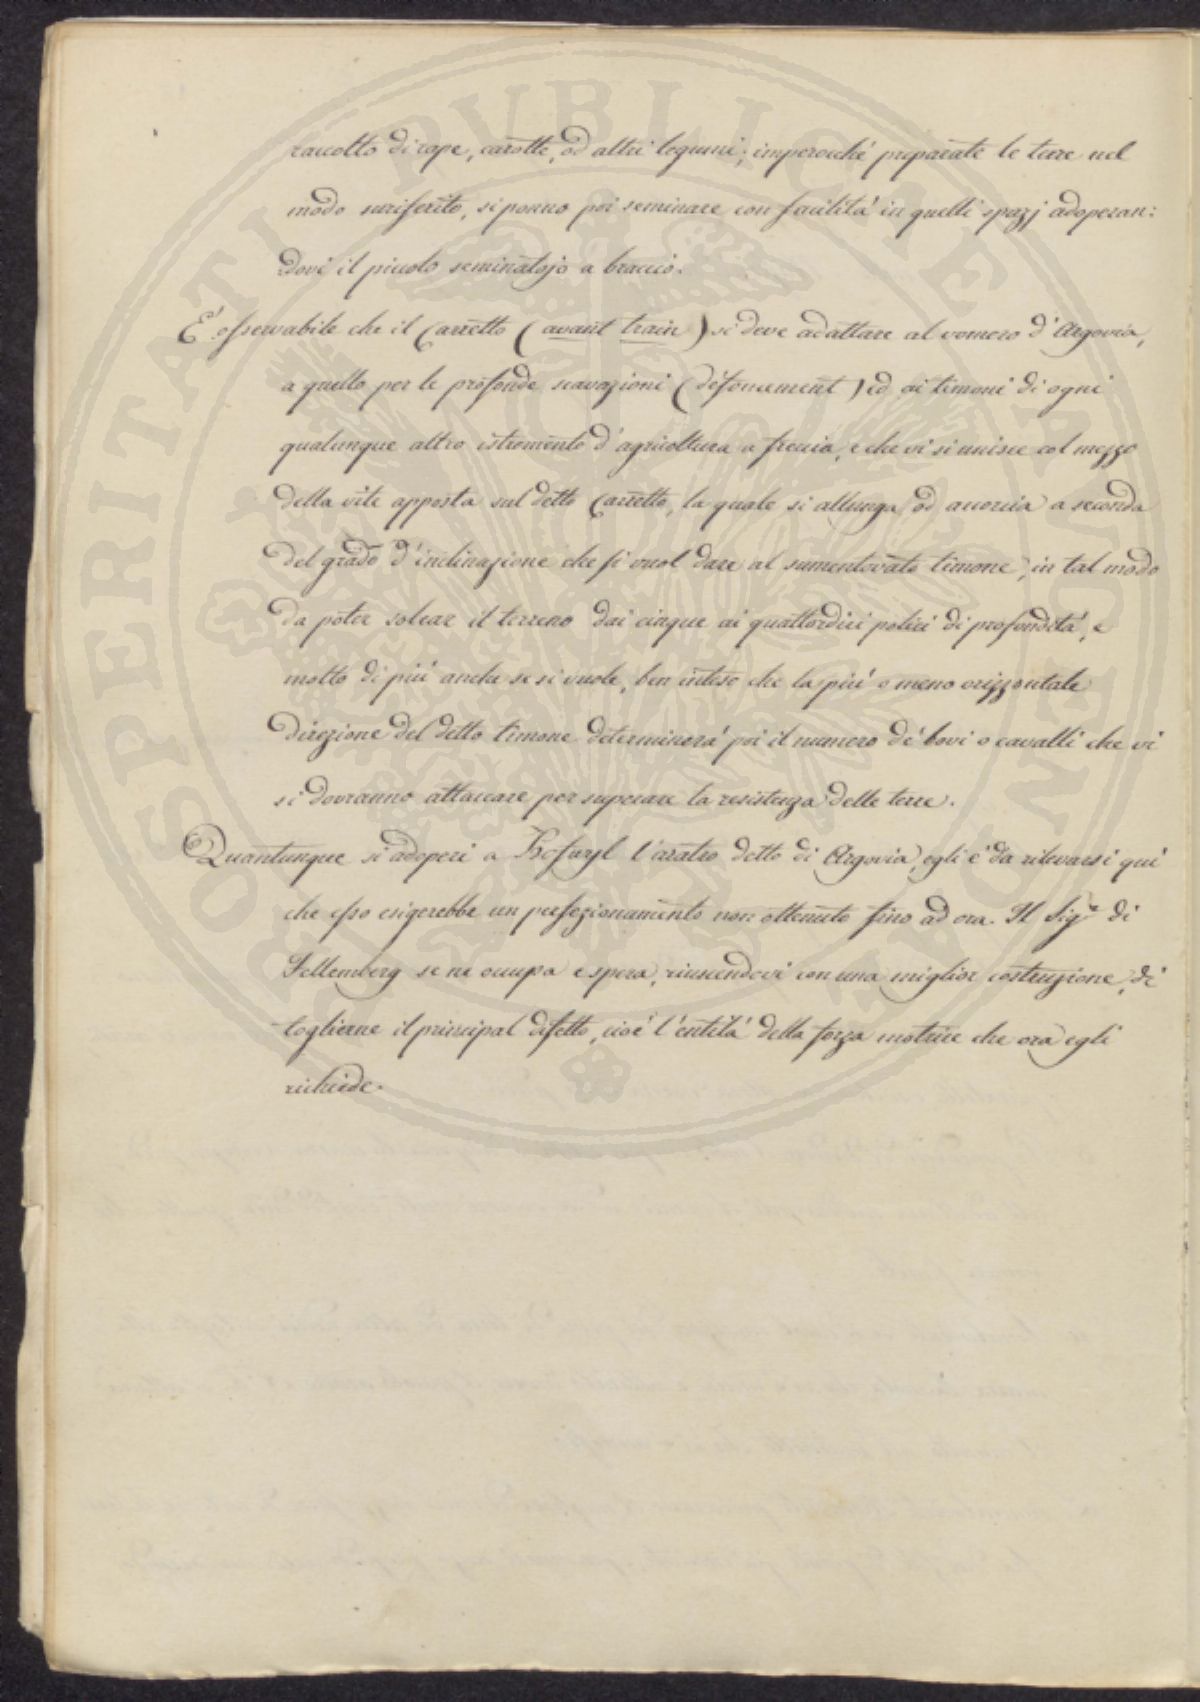 raccolto di rape, carotte, od altri legumi; imperocché preparate le terre nel
modo suriferito, si ponno poi seminare con facilità in quelli spazj adoperan:
dovi il piccolo seminatojo a braccio.
E' osservabile che il Carretto (avant train) si deve adattare al vomero d'Argovia,
a quello per le profonde scavazioni (défoncement) ed ai timoni di ogni
qualunque altro istromento d'agricoltura a freccia, e che vi si unisce col mezzo
della vite apposta sul detto Carretto, la quale si allunga od accorcia a seconda
del grado d'inclinazione che si vuol dare al sumentovato timone, in tal modo
da poter solcar il terreno dai cinque ai quattordici polici di profondità, e
molto di più anche se si vuole, ben inteso che la più o meno orizzontale
direzione del detto timone determinerà poi il numero de' bovi o cavalli che vi
si dovranno attaccare per superare la resistenza delle terre.
Quantunque si adoperi a Hofwyl l'aratro detto di Argovia, egli è da rilevarsi qui
che esso esigerebbe un perfezionamento non ottenuto fino ad ora. Il Sigr. di
Fellemberg se ne occupa e spera, riuscendovi con una miglior costruzione, di
toglierne il principal difetto, cioè l'entità della forza motrice che ora egli
richiede.
PROSPERITATI PUBLICAE